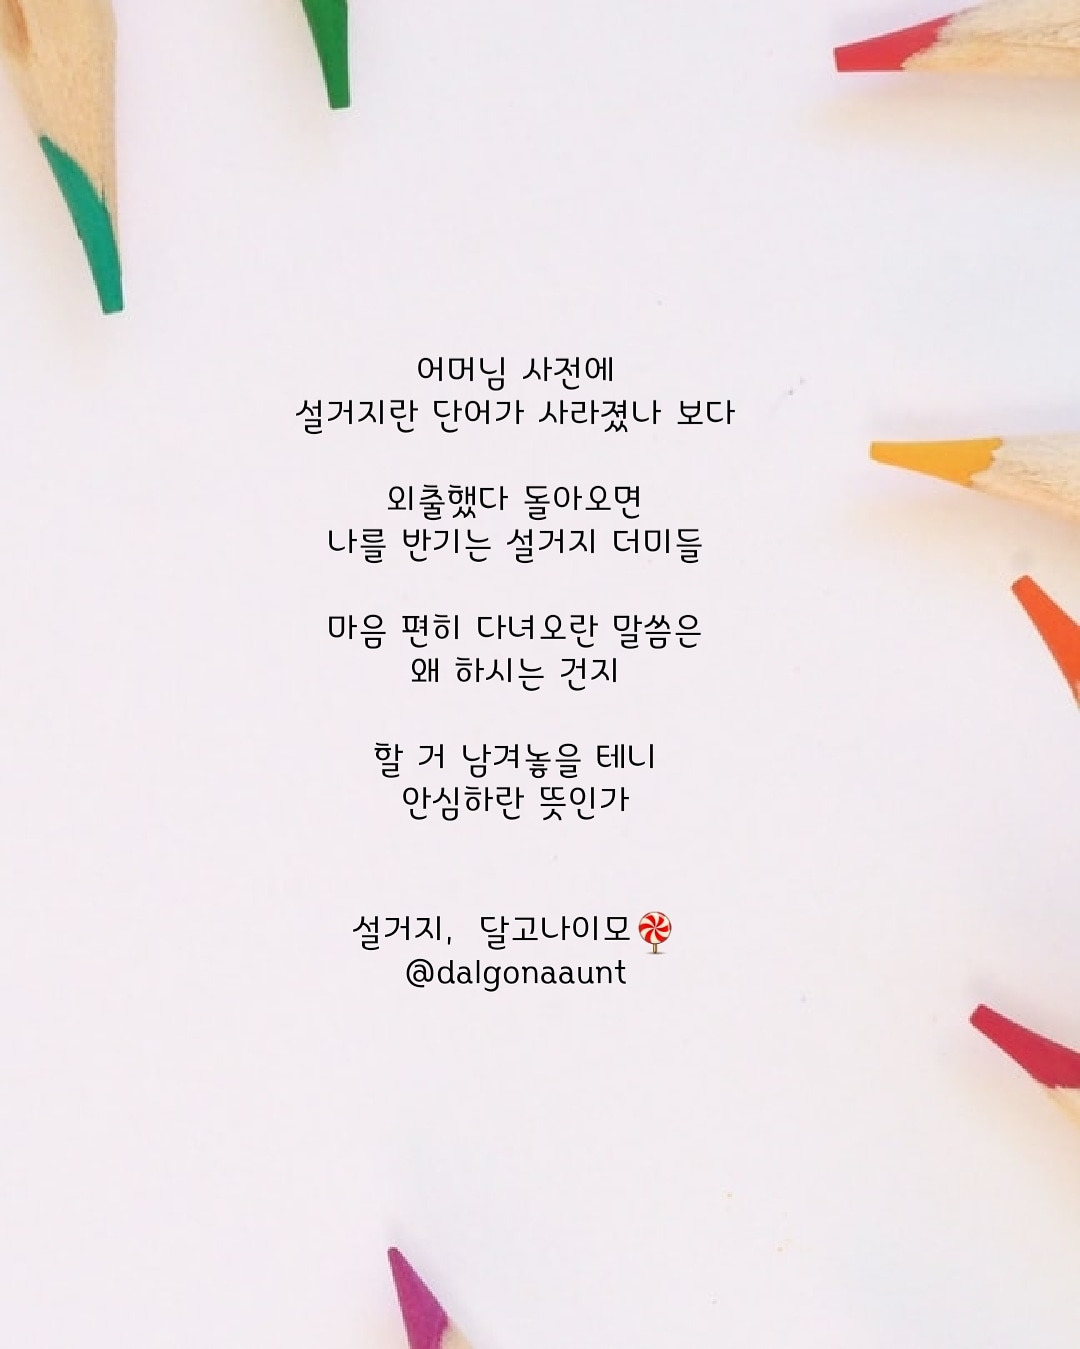 어머님 사전에
설거지란 단어가 사라졌나 보다
외출했다 돌아오면
나를 반기는 설거지 더미들
마음 편히 다녀오란 말씀은
왜 하시는 건지
할 거 남겨놓을 테니
안심하란 뜻인가
설거지, 달고나이모🍭
@dalgonaaunt